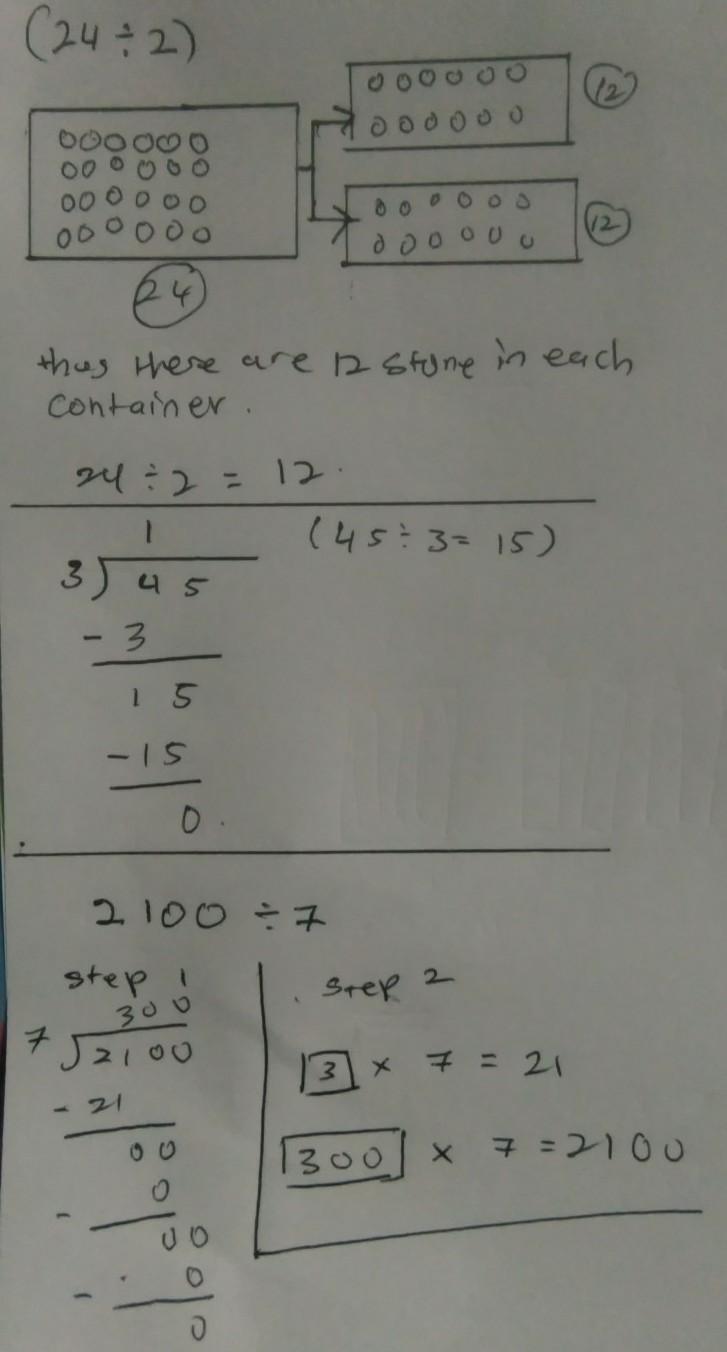 (24 ÷ 2)
12
12
24
thus there are 12 stone in each
container.
24 ÷ 2 = 12.
1
(45 ÷ 3 = 15)
3) 45
- 3
15
- 15
0.
2100 ÷ 7
step 1
300
7 2100
- 21
00
- 0
00
- 0
0
step 2
3 × 7 = 21
300 × 7 = 2100